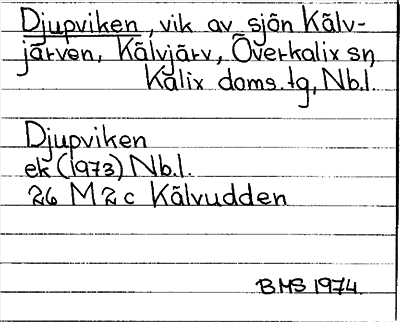 Djupviken, vik av sjön Kälv-
järven, Kälvjärv, Överkalix sn
Kalix doms. tg, Nb.l.
Djupviken
ek (1973) Nb.l.
26 M 2 c Kälvudden
BMS 1974.